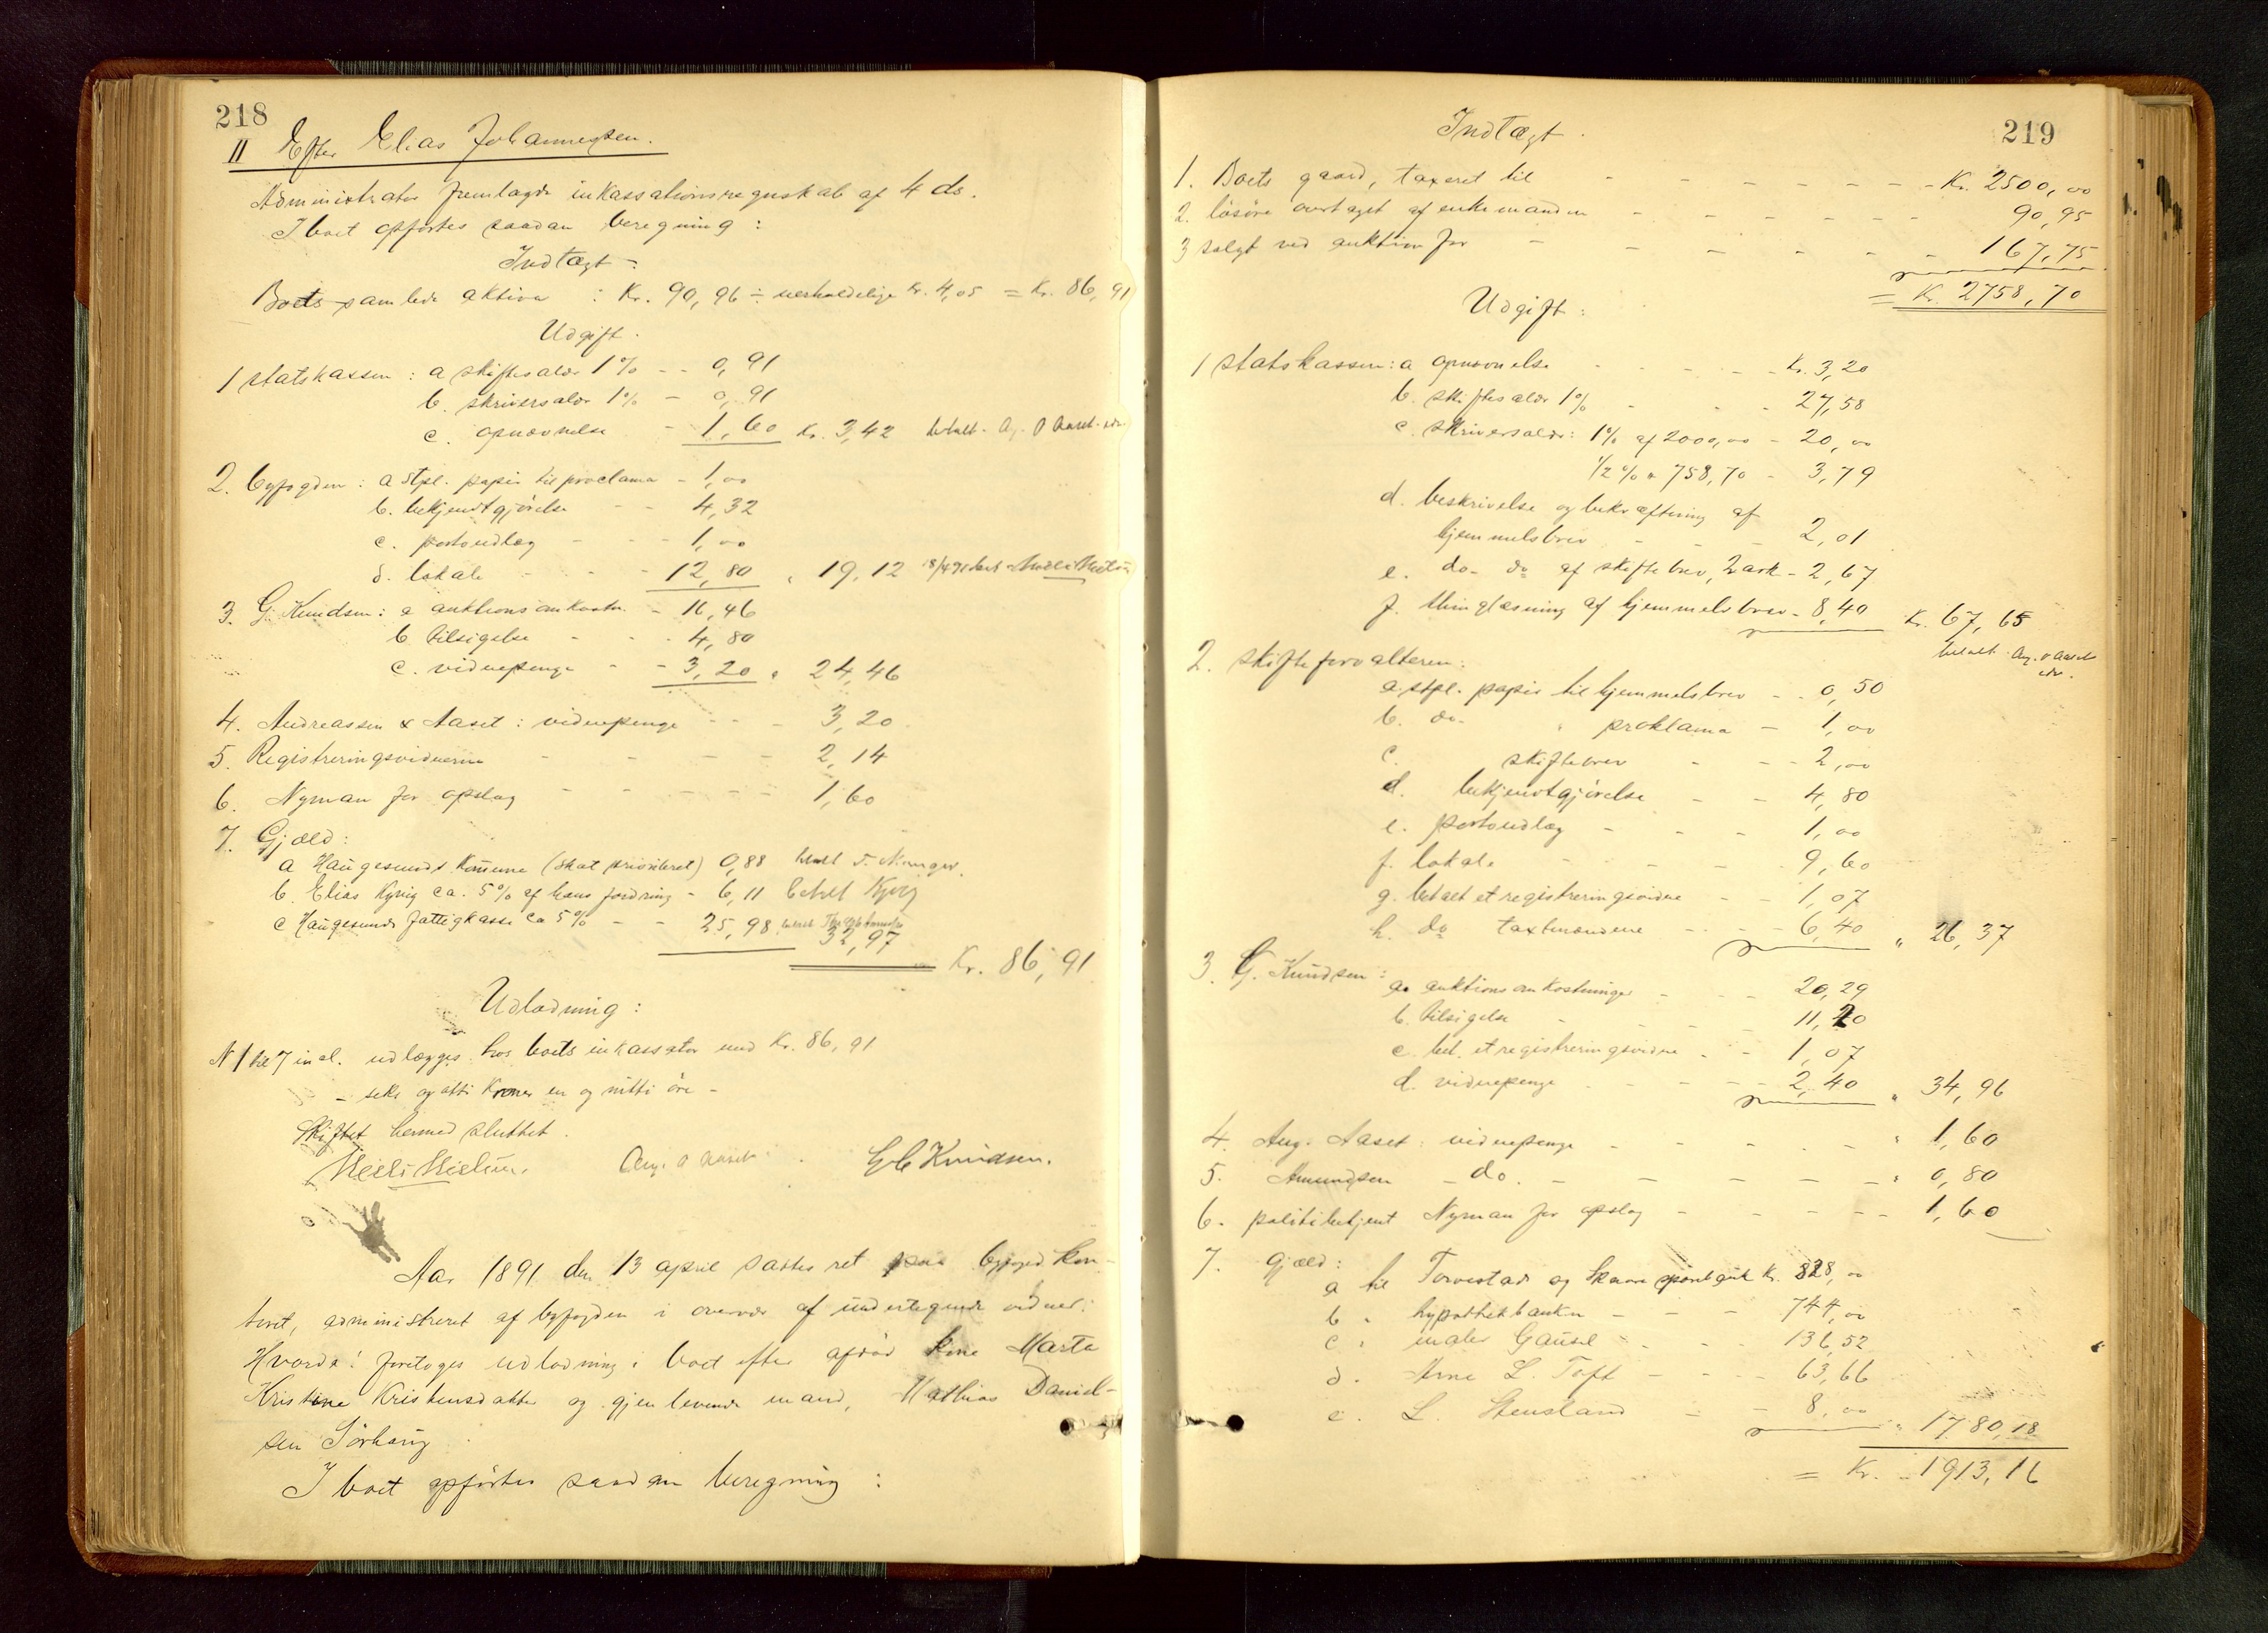 218
II Efter Elias Johannessen.
Administrator fremlagde inkassationsregnskab af 4 ds.
I boet opførtes saadan beregning:
Indtægt:
Boets samlede aktiva : Kr. 90,96 ÷ uerholdelige Kr. 4,05 = Kr. 86,91
Udgift.
1 statskassen : a skiftesalær 1% - - 0,91
b. skriversalær 1% - 0,91
c. opnævnelse - 1,60 Kr. 3,42 betalt. Aug. O Aaset
2. byfogden : a stpl. papir til proclama - 1,00
b. bekjendtgjørelse - - 4,32
c. portoudlæg - - - 1,00
d. lokale - - - 12,80 " 19,12
3. G. Knudsen : a auktionsomkostn. - 16,46
b. tilsigelse - - - 4,80
c. vidnepenge - - 3,20 " 24,46
4. Andreassen & Aaset : vidnepenge - - - 3,20
5. Registreringsvidnerne - - - - - 2,14
6. Nyman for opslag - - - - - - 1,60
7. Gjæld:
a Haugesunds Komune (skat prioriteret) 0,88 betalt
b. Elias Kyvig ca. 5% af hans fordring - 6,11 betalt Kyvig
c Haugesunds fattigkasse ca 5% - - 25,98 betalt 32,97
Kr. 86,91
Udlodning :
N 1 til 7 incl. udlægges hos boets inkassator med Kr. 86,91
- seks og otti Kroner en og nitti øre -
Skiftet hermed sluttet.
Aug. O Aaset. G C Knudsen.
Aar 1891 den 13 april sattes ret paa byfogedkon-
toret, administreret af byfogden i overvær af undertegnede vidner:
Hvorda: foretoges udlodning i boet efter afdød kone Marta
Kristine Kristensdatter og gjenlevende mand, Mathias Daniel-
sen Sørhaug
I boet opførtes saadan beregning :
219
Indtægt.
1. Boets gaard, taxeret til - - - - - - - Kr. 2500,00
2. løsøre overtaget af enkemanden - - - - - - 90,95
3 solgt ved auktion for - - - - - - 167,75
= Kr. 2758,70
Udgift :
1 statskassen: a opnævnelse - - - - - Kr. 3,20
b. skiftesalær 1% - - - 27,58
c. skriversalær: 1% af 2000,00 - 20,00
1/2 % " 758,70 - 3,79
d. beskrivelse og bekræftning af
hjemmelsbrev - - - 2,01
e. do- do af skiftebrev, 2 ark - 2,67
f. thinglæsning af hjemmelsbrev - 8,40 Kr. 67,65
betalt. Aug. O Aaset
2. skifteforvalteren:
a. stpl. papir til hjemmelsbrev - - 0,50
b. do- " proklama - 1,00
c. skiftebrev - - - 2,00
d. bekjendtgjørelse - - 4,80
e. portoudlæg - - - 1,00
f. lokale - - - - - 9,60
g. betalt et registreringsvidne - - 1,07
h. do taxtmændene - - - 6,40 " 26,37
3 G. Knudsen :
a. auktionsomkostninger - - - 20,29
b. tilsigelse - - - - 11,20
c. bet. et registreringsvidne - - 1,07
d. vidnepenge - - - - 2,40 " 34,96
4. Aug. Aaset : vidnepenge - - - - - " 1,60
5. Amundsen - do. - - - - - " 0,80
6. politibetjent Nyman for opslag - - - - - 1,60
7. gjæld :
a til Torvestad og Skaare sparebank Kr. 828,00
b " hypothekbanken - - - 744,00
c " maler Gausel - - - 136,52
d. Arne L. Toft - - - - 63,66
e. L. Stensland - - 8,00 " 1780,18
= Kr. - 1913,16